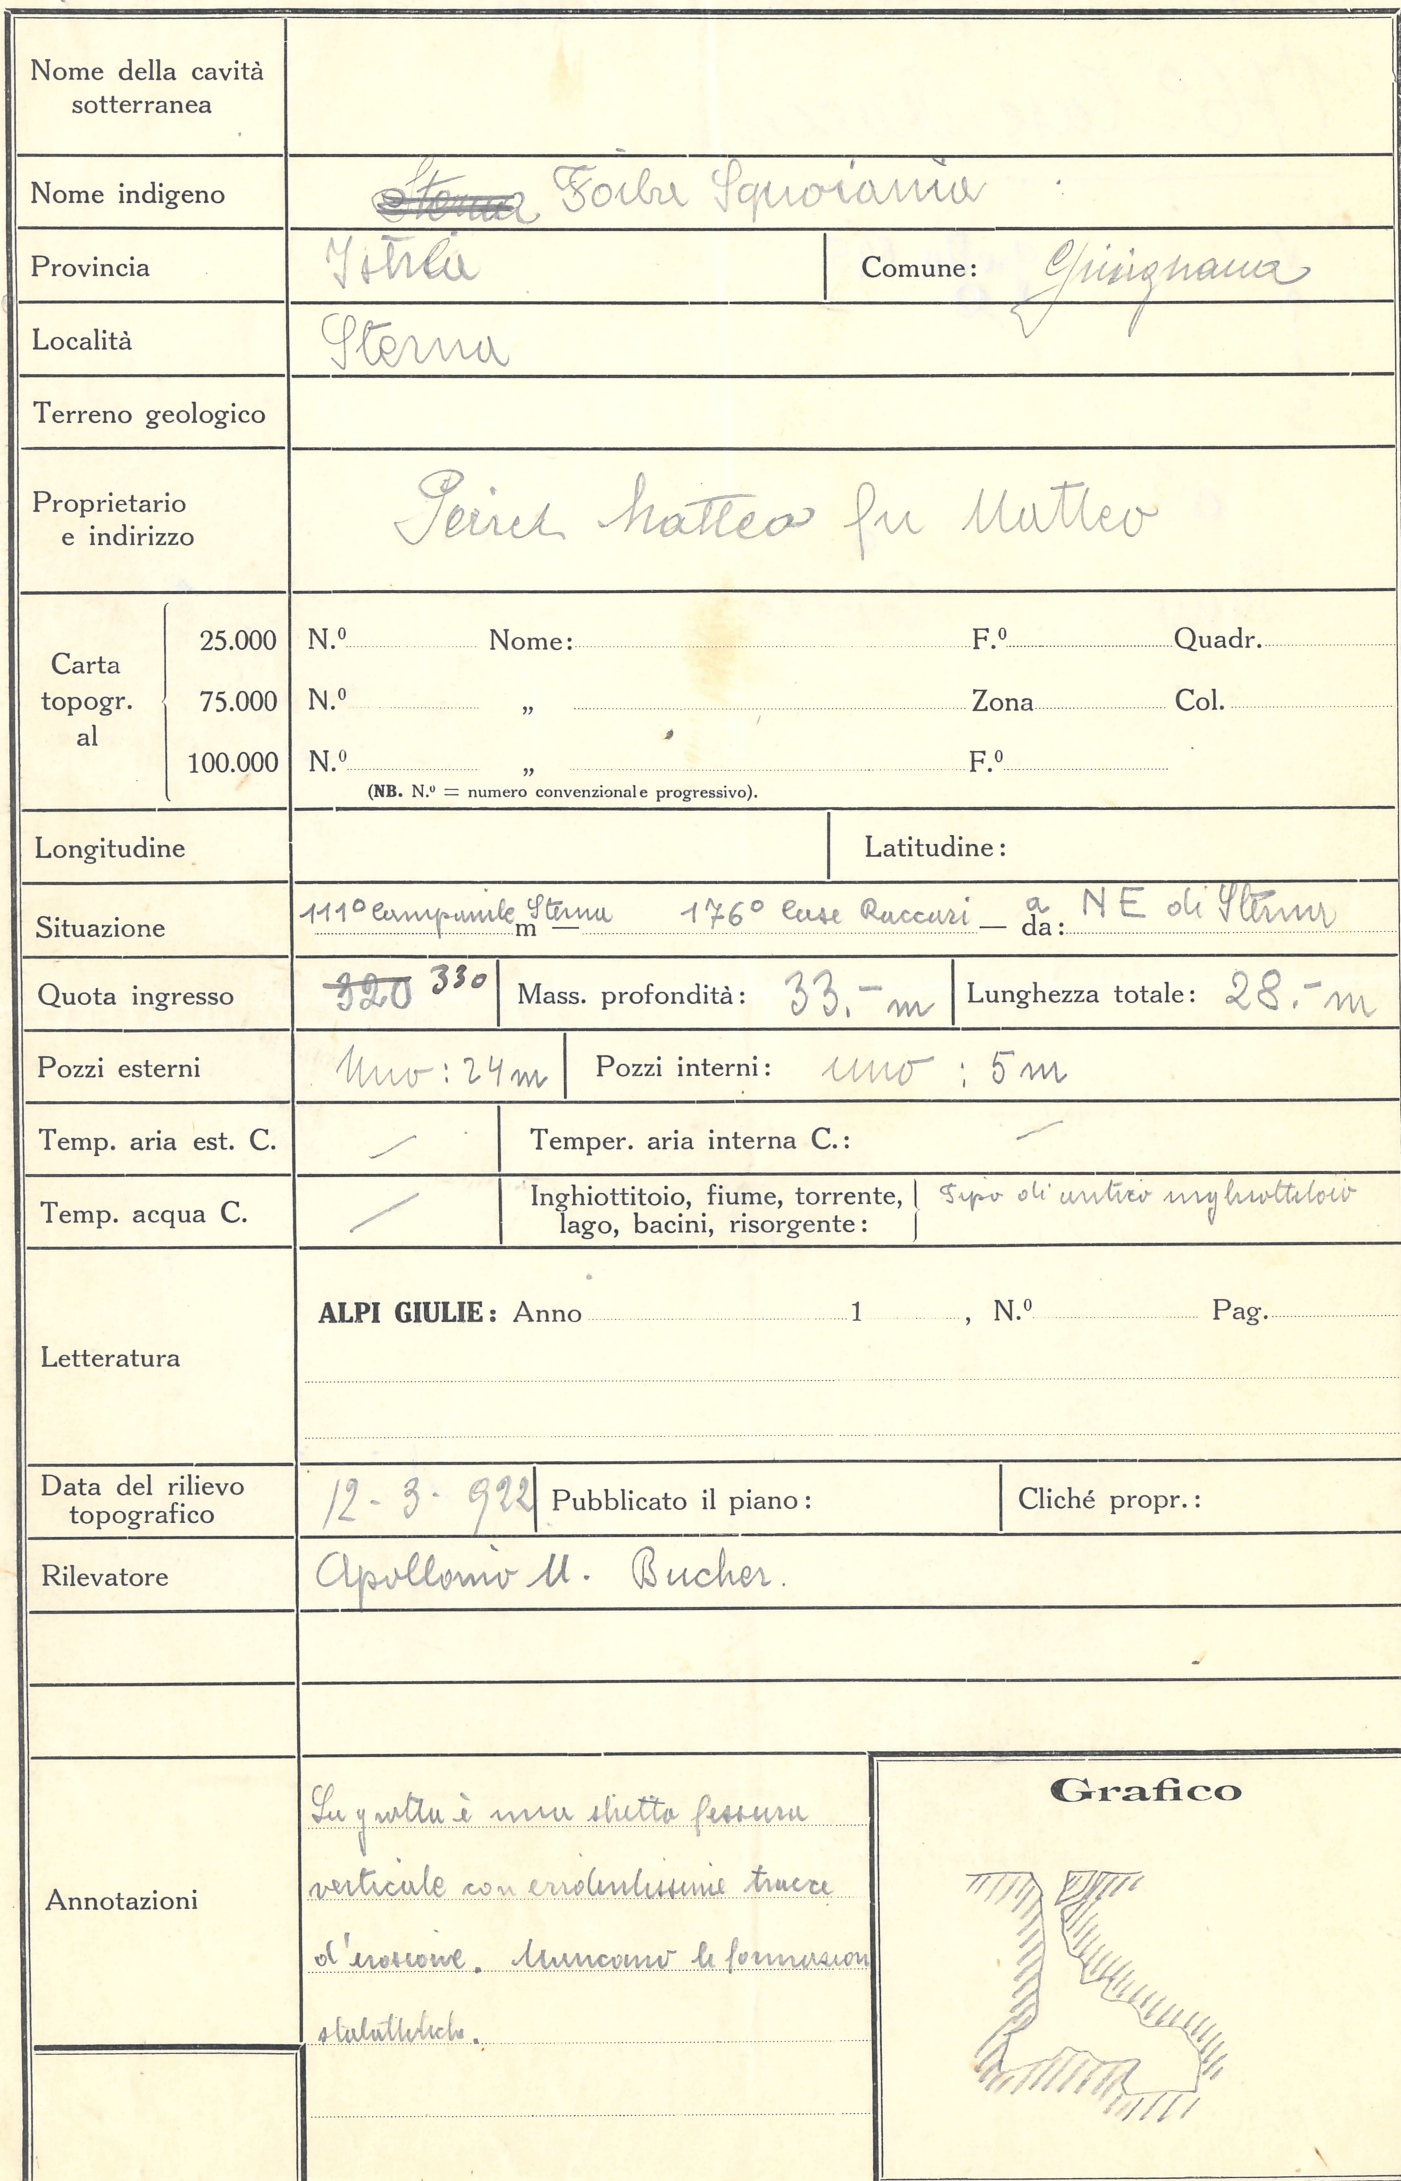 Nome della cavità
sotterranea
Nome indigeno Sterna Foiba Squoiania
Provincia Istria Comune: Grisignana
Località Sterna
Terreno geologico
Proprietario
e indirizzo
Matteo fu Matteo
Carta
topogr.
al
25.000 N.º Nome: F.º Quadr.
75.000 N.º „ Zona Col.
100.000 N.º „ F.º
(NB. N.º = numero convenzionale progressivo).
Longitudine Latitudine:
Situazione 111º Campanile Sterna m — 176º Case Raccari — a da: NE di Sterna
Quota ingresso 320 330 Mass. profondità: 33.- m Lunghezza totale: 28.- m
Pozzi esterni Uno: 24 m Pozzi interni: uno : 5 m
Temp. aria est. C. — Temper. aria interna C.: —
Temp. acqua C. — Inghiottitoio, fiume, torrente,
lago, bacini, risorgente: Tipo di antico inghiottitoio
ALPI GIULIE: Anno 1 , N.º Pag.
Letteratura
Data del rilievo
topografico 12 - 3 - 922 Pubblicato il piano: Cliché propr.:
Rilevatore Apollonio M. Bucher.
Annotazioni
La grotta è una stretta fessura
verticale con evidentissime tracce
d'erosione. Mancano le formazion
stalattitiche.
Grafico